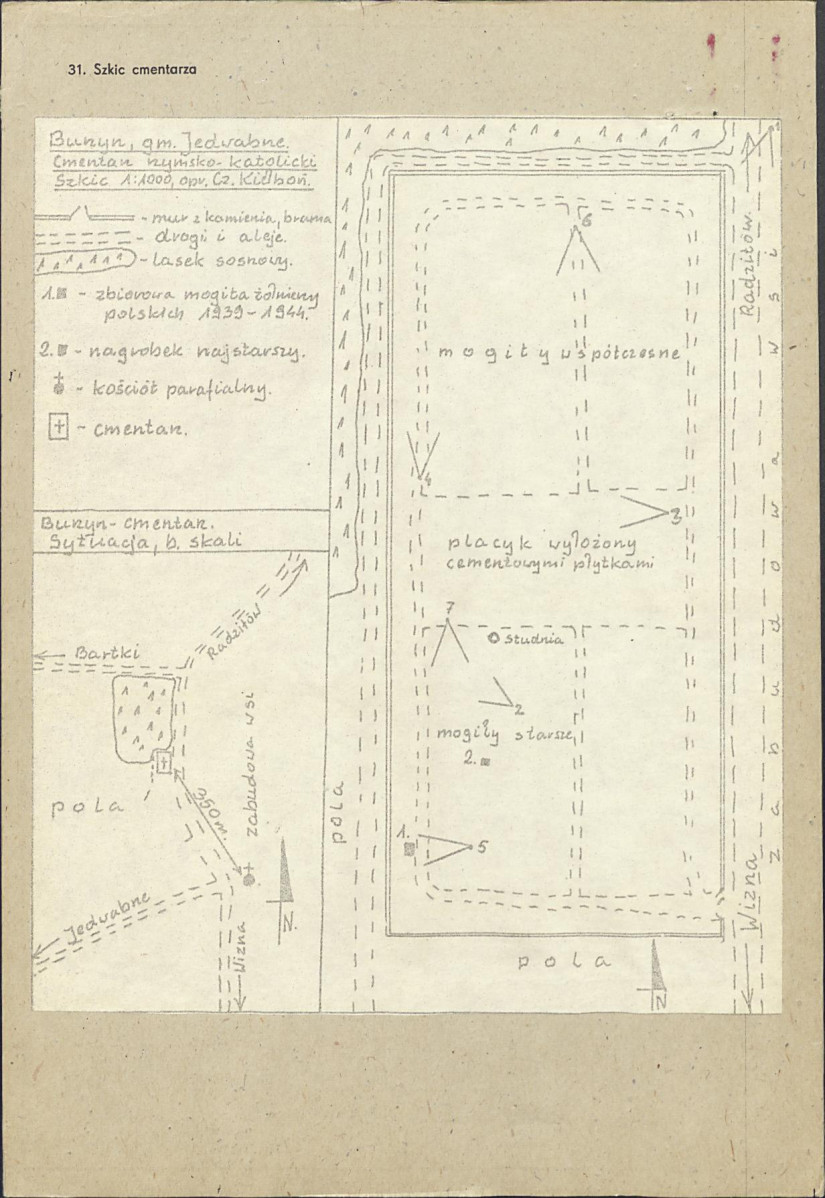 31. Szkic cmentarza
Burzyn, gm. Jedwabne.
Cmentarz rzymsko-katolicki
Szkic 1:1000, opr. Cz. Kiełboń.
- mur z kamienia, brama
- drogi i aleje.
- lasek sosnowy.
1. - zbiorowa mogiła żołnierzy
polskich 1939-1944.
2. - nagrobek najstarszy.
- kościół parafialny.
- cmentarz.
Burzyn- cmentarz.
Sytuacja, b. skali
Radziłów
Bartki
zabudowa wsi
pola
Jedwabne
Wizna
N.
pola
1
6
Radziłów.
mogiły współczesne
4
3
placyk wyłożony
cementowymi płytkami
7
studnia
2
mogiły starsze
2.
1.
5
zabudowa wsi
Wizna
pola
N